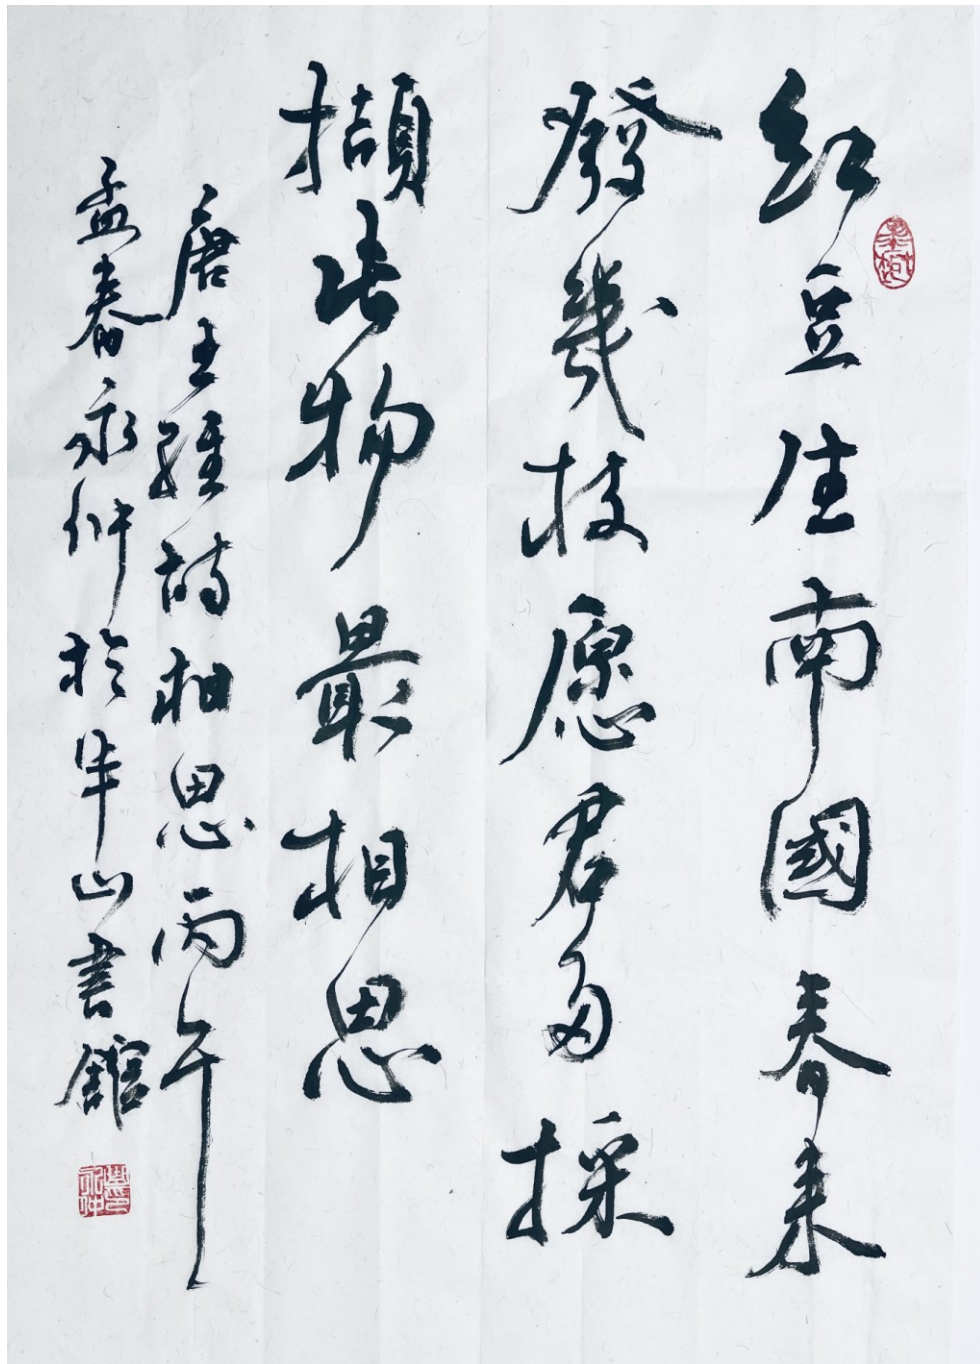 红豆生南國春来
發幾枝愿君多採
擷此物最相思
唐王維詩相思丙午
孟春永仲於半山書館